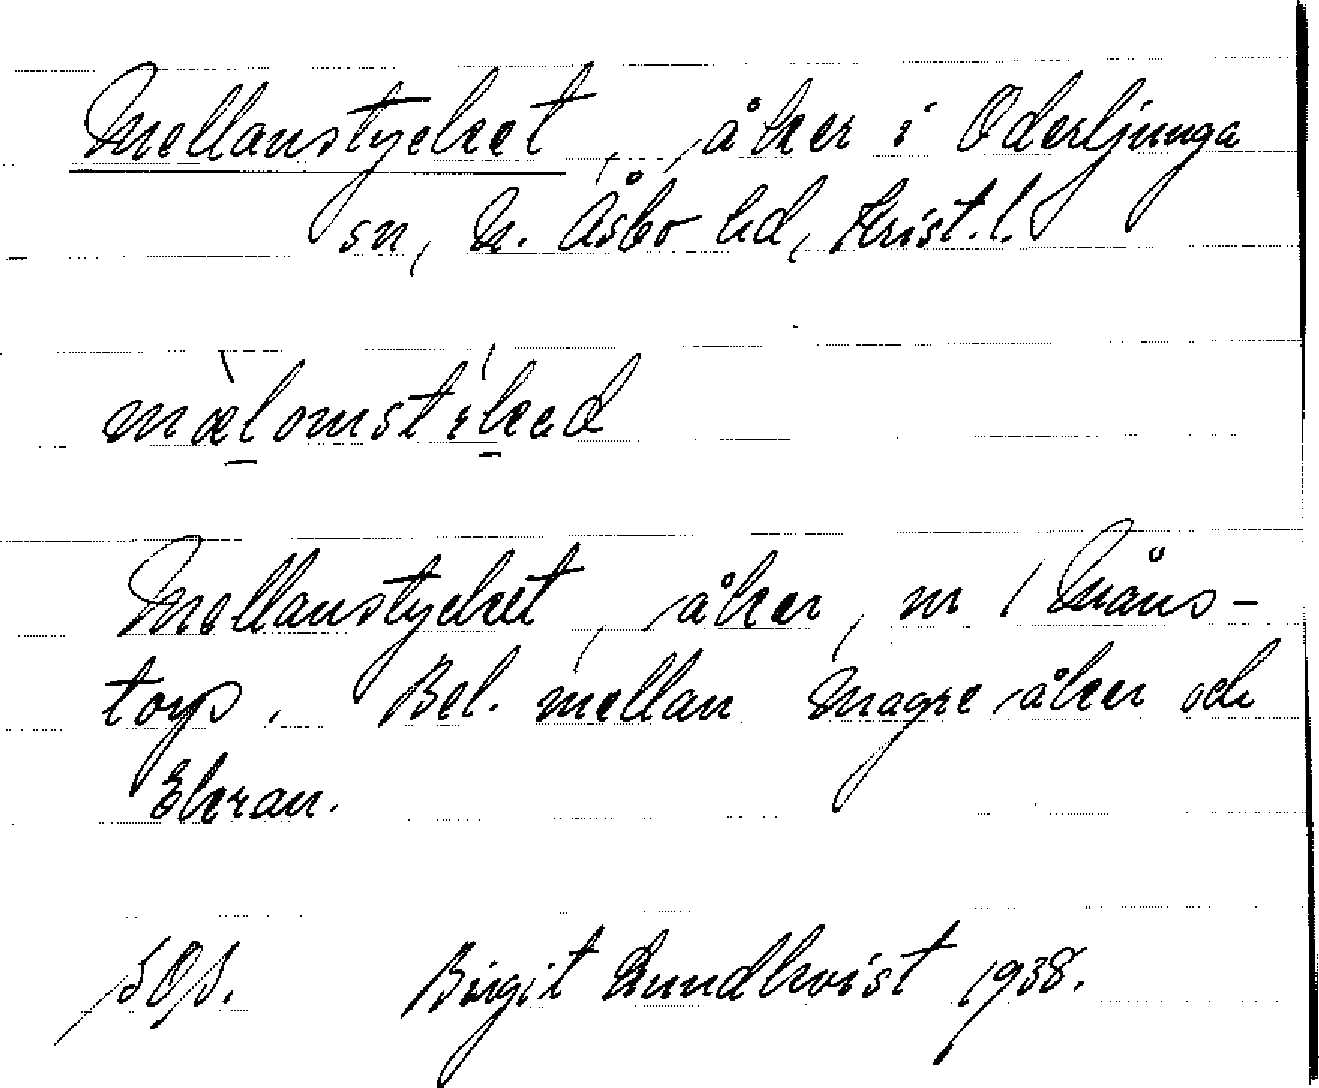 Mellanstycket, åker i Oderljunga
sn, N. Åsbo hd, Krist. l.
mælomstikəd
Mellanstycket, åker, nr 1 Måns-
torp. Bel. mellan Magre åker och
Ekran.
SOS. Birgit Lundkvist 1938.